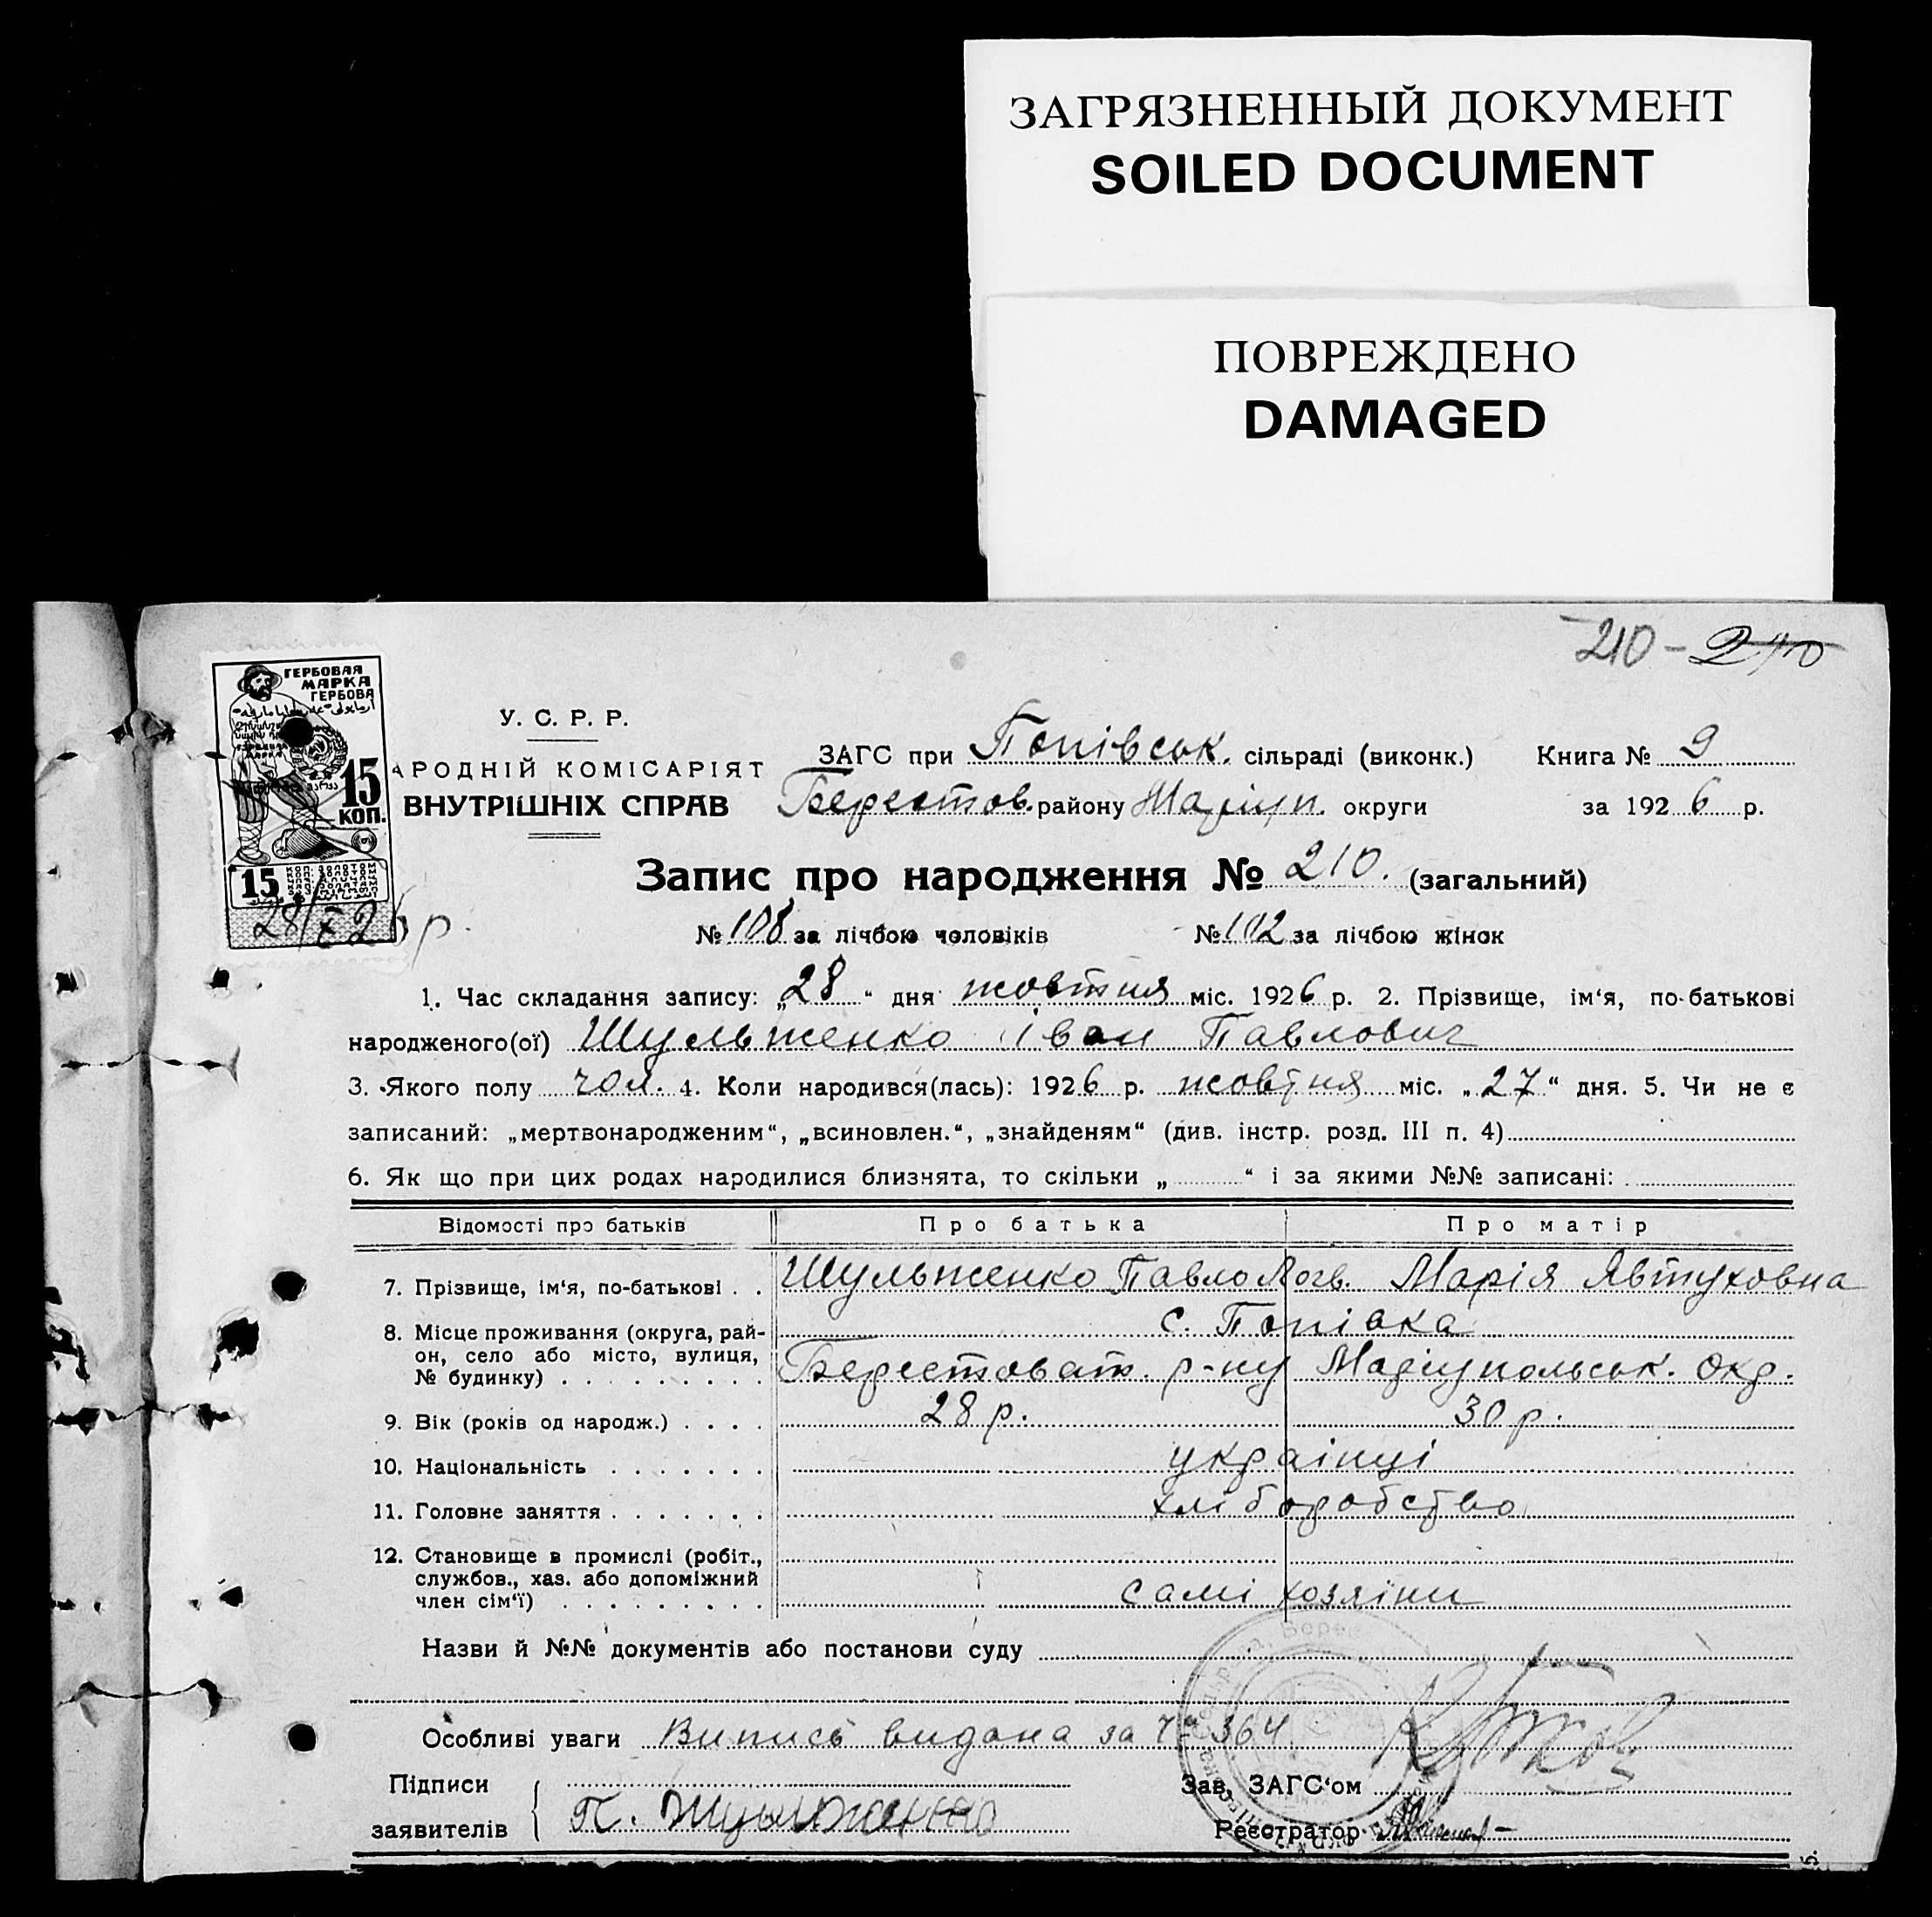 ЗАГРЯЗНЕННЫЙ ДОКУМЕНТ
SOILED DOCUMENT
ПОВРЕЖДЕНО
DAMAGED
210 - 210
ГЕРБОВАЯ
МАРКА
ГЕРБОВА
15
КОП.
15
У. С. Р. Р.
АРОДНІЙ КОМІСАРІЯТ
ВНУТРІШНІХ СПРАВ
ЗАГС при Попівськ. сільраді (виконк.) Книга № 9
Берестов. району Маріуп. округи за 1926 р.
Запис про народження № 210. (загальний)
№ 108 за лічбою чоловіків № 102 за лічбою жінок
1. Час складання запису: „28“ дня жовтня міс. 1926 р. 2. Прізвище, ім‘я, по-батькові
народженого(ої) Шульженко Іван Павлович
3. Якого полу чол. 4. Коли народився(лась): 1926 р. жовтня міс. „27“ дня. 5. Чи не є
записаний: „мертвонародженим“, „всиновлен.“, „знайденям“ (див. інстр. розд. III п. 4)
6. Як що при цих родах народилися близнята, то скільки „ “ і за якими №№ записані:
Відомості про батьків Про батька Про матір
7. Прізвище, ім‘я, по-батькові . . Шульженко Павло Логв. Марія Явтуховна
8. Місце проживання (округа, рай- с. Попівка
он, село або місто, вулиця,
№ будинку) . . . . . . . . . Берестоват. р-ну Маріупольськ. Окр.
9. Вік (років од народж.) . . . . 28 р. 30 р.
10. Національність . . . . . . . українці
11. Головне заняття . . . . . . . хліборобство
12. Становище в промислі (робіт.,
службов., хаз. або допоміжний
член сім‘ї) . . . . . . . . . самі хозяіни
Назви й №№ документів або постанови суду
Особливі уваги Випись видана за Ч° 364
Підписи Зав. ЗАГС‘ом
заявителів П. Шульженко Реєстратор